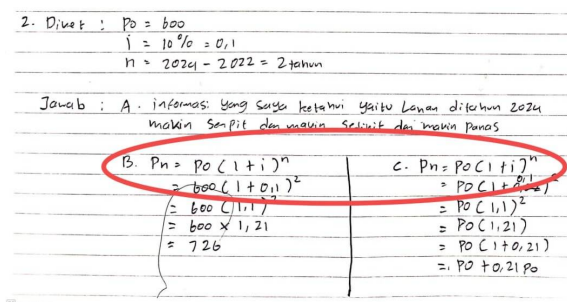 2. Diket : Po = 600
i = 10% = 0,1
n = 2024 - 2022 = 2 tahun
Jawab : A. informasi yang saya ketahui yaitu Lahan ditahun 2024
makin sempit dan makin sedikit dan makin panas
B. Pn = Po (1 + i)ⁿ
= 600 (1 + 0,1)²
= 600 (1,1)²
= 600 × 1,21
= 726
C. Pn = Po (1 + i)ⁿ
= Po (1 + 0,1)²
= Po (1,1)²
= Po (1,21)
= Po (1+0,21)
= Po + 0,21 Po